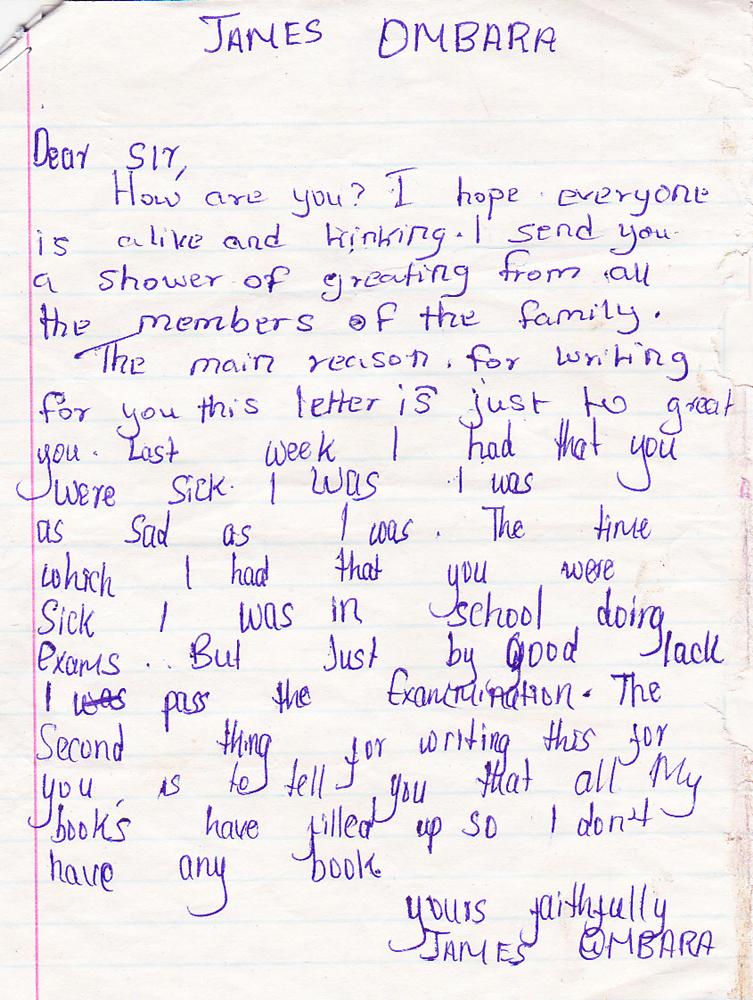 JAMES OMBARA
Dear Sir,
How are you? I hope everyone
is alive and kinking. I send you
a shower of greating from all
the members of the family.
The main reason. for writing
for you this letter is just to great
you. Last week I had that you
were sick. I was I was
as sad as I was. The time
which I had that you were
sick I was in school doing
exams... But Just by good lack
I was pass the Examinination. The
Second thing for writing this for
you, is to tell you that all My
books have filled up so I don't
have any book.
yours faithfully
JAMES OMBARA